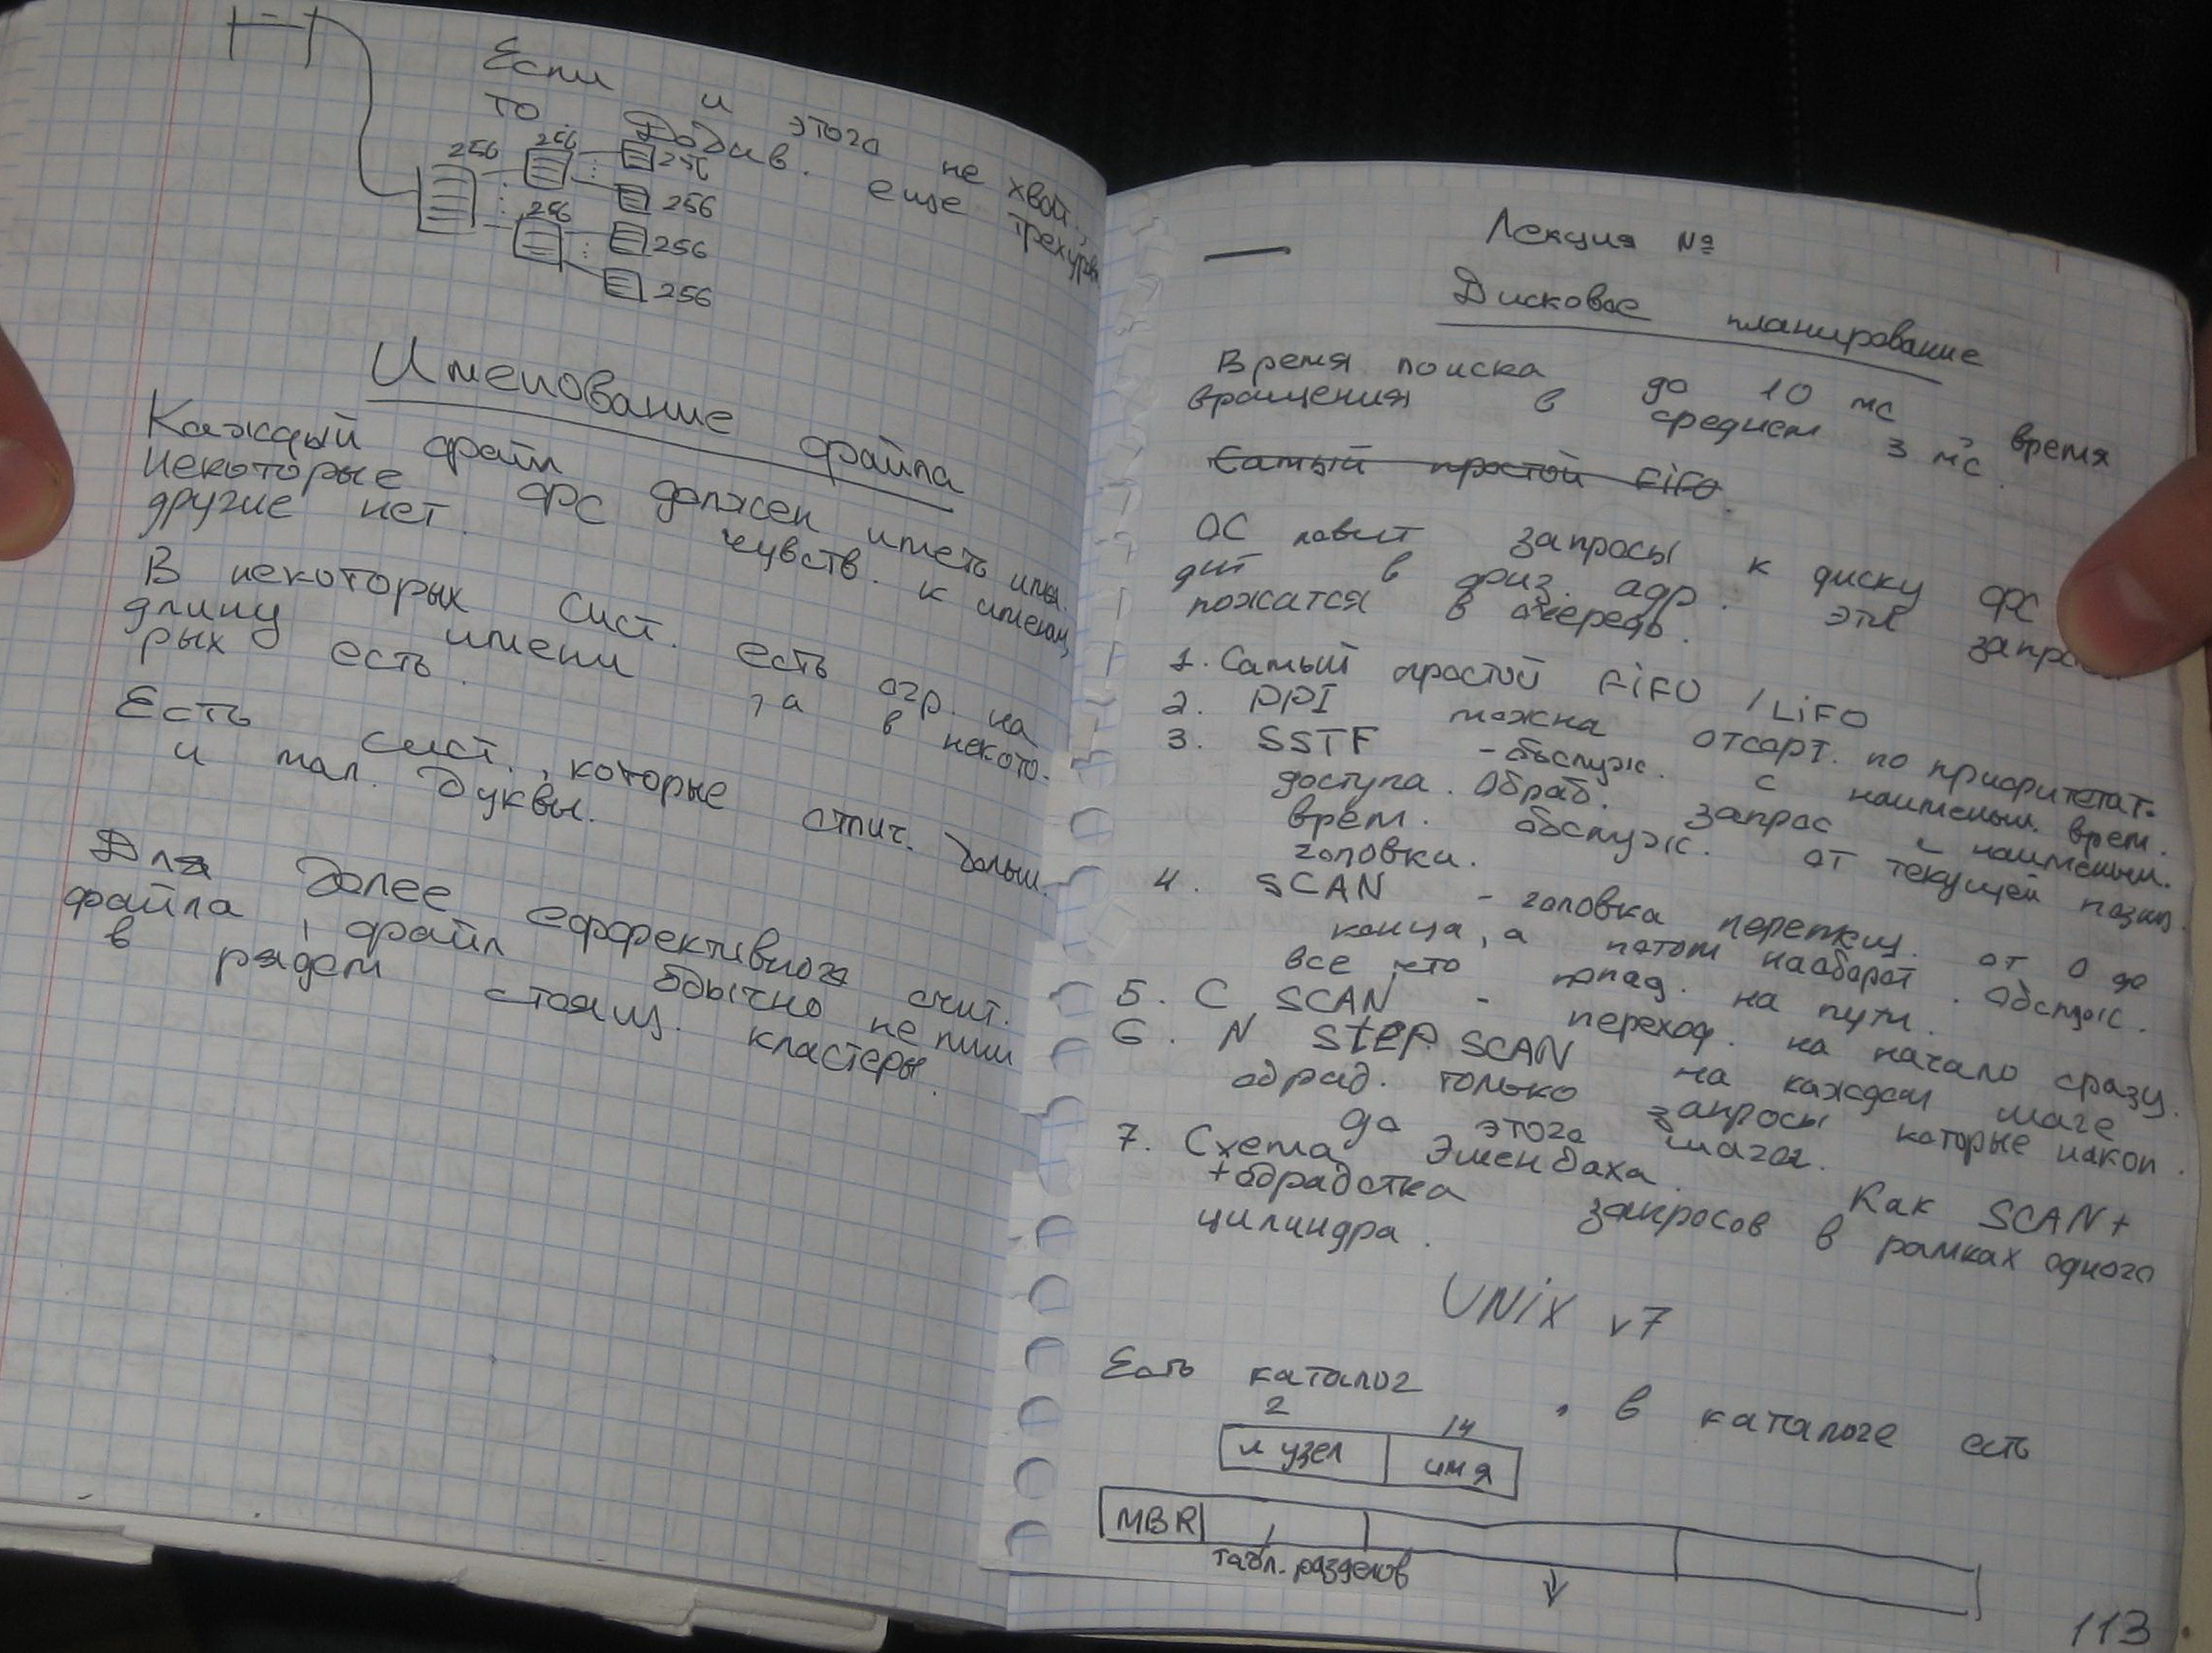 Если и этого не хвот.,
то добав. еще трехуров
256 256 256
256
256 256
256
Именование файла
Каждый файл должен иметь имя.
Некоторые ФС чувств. к именам,
другие нет.
В некоторых сист. есть огр. на
длину имени, а в некото-
рых есть.
Есть сист., которые отлич. больш.
и мал. буквы.
Для более еффективного счит.
файла, файл обычно не пиш
в рядом стоящ. кластеры.
Лекция №
Дисковое планирование
Время поиска до 10 мс, время
вращения в среднем 3 мс.
Самый простой FiFO.
ОС ловит запросы к диску ФС
дит в физ. адр. эти запро
ложатся в очередь.
1. Самый простой FiFO / LiFO
2. PPI можна отсорт. по приоритетат.
3. SSTF - обслуж. с наименьш. врем.
доступа. Обраб. запрос с наименьш.
врем. обслуж. от текущей позиц.
головки.
4. SCAN - головка перемещ. от 0 до
конца, а потом наоборот. Обслуж.
все что попад. на пути.
5. C SCAN - переход. на начало сразу.
6. N StEP SCAN на каждом шаге
обраб. только запросы которые накоп.
до этого шага.
7. Схема Эшенбаха. Как SCAN+
+обработка запросов в рамках одного
цилиндра.
UNiX v7
Есть каталог, в каталоге есть
2 14
и узел имя
MBR
табл. разделов
113